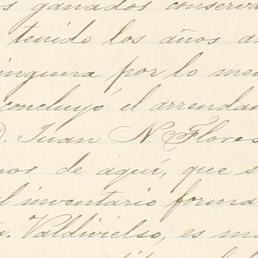 s ganados conserva
tenido los años an
inguna por lo men
concluyó el arrendam
D. Juan N. Flores
nos de aquí, que s
el inventario forma
a. Valdivielso, es m